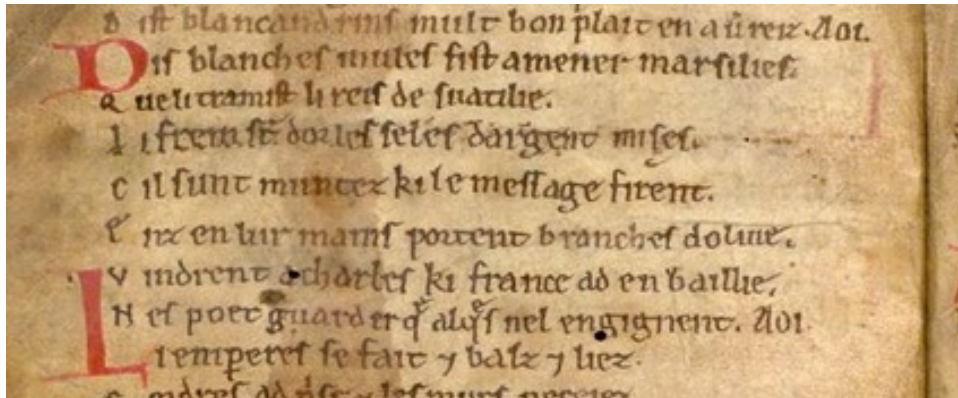 D ist blancandrins mult bon plait en aűreiz. Aoi.
Dis blanches mules fist amener marsilies.
Q ue li tramist li reis de suatilie.
L i frein st̄ dor les seles dargent mises.
C il sunt muntez ki le message firent.
E nz en lur mains portent branches dolive.
V indrent a charles ki france ad en baillie.
N es poet guarder q̄ alq̄s nel engignent. Aoi.
Li empereres se fait ⁊ balz ⁊ liez.
C ordres ad p̓se ⁊ les murs peceiez